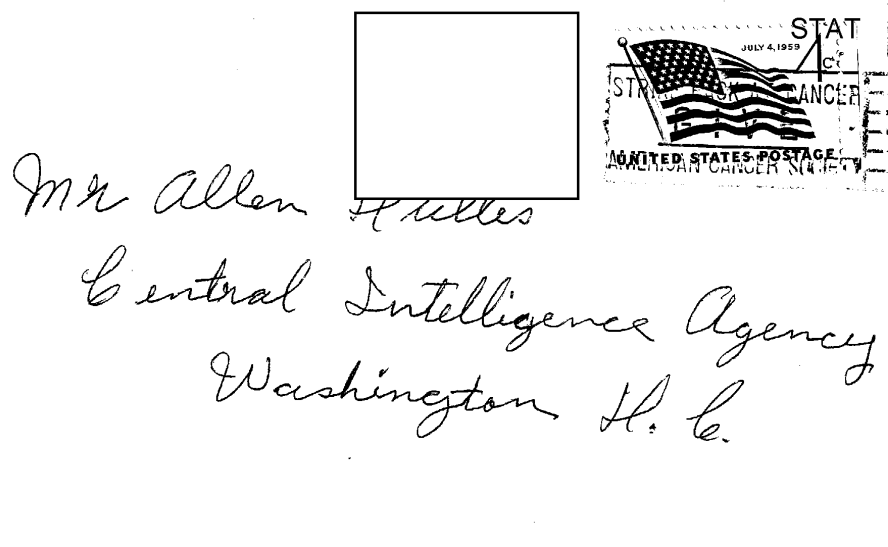 STAT
JULY 4, 1959
4c
STRIKE BACK AT CANCER
UNITED STATES POSTAGE
AMERICAN CANCER SOCIETY
Mr Allen Dulles
Central Intelligence Agency
Washington D. C.